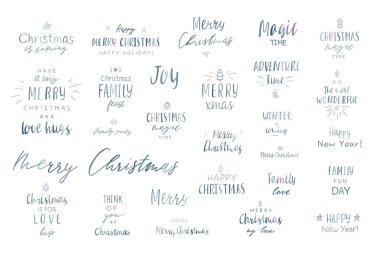 Christmas
is coming
Happy
MERRY CHRISTMAS
HAPPY HOLIDAYS
Merry
Christmas
Magic
TIME
CHRISTMAS
magic
TIME
HAVE
A very
MERRY
CHRISTMAS
and
love hugs
Christmas
FAMILY
feast
family party
Joy
CHRISTMAS
magic
TIME
MERRY
xmas
Merry
Christmas
ADVENTURE
Time
WINTER
is
coming
Merry Christmas
The most
WONDERFUL
Happy
New Year!
Merry Christmas
CHRISTMAS
IS FOR
LOVE
hugs
THINK
OF you
at
Christmas
Merry
HAPPY
Merry Christmas
HAPPY
CHRISTMAS
Merry
Christmas
my love
Family
love
FAMILY
FUN
DAY
HAPPY
New Year!